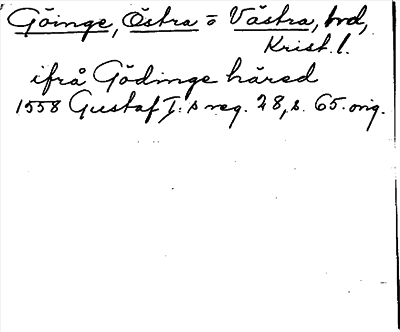 Göinge, Östra o Västra, hrd,
Krist. l.
ifrå Gödinge häred
1558 Gustaf I:s reg. 28, s. 65. orig.